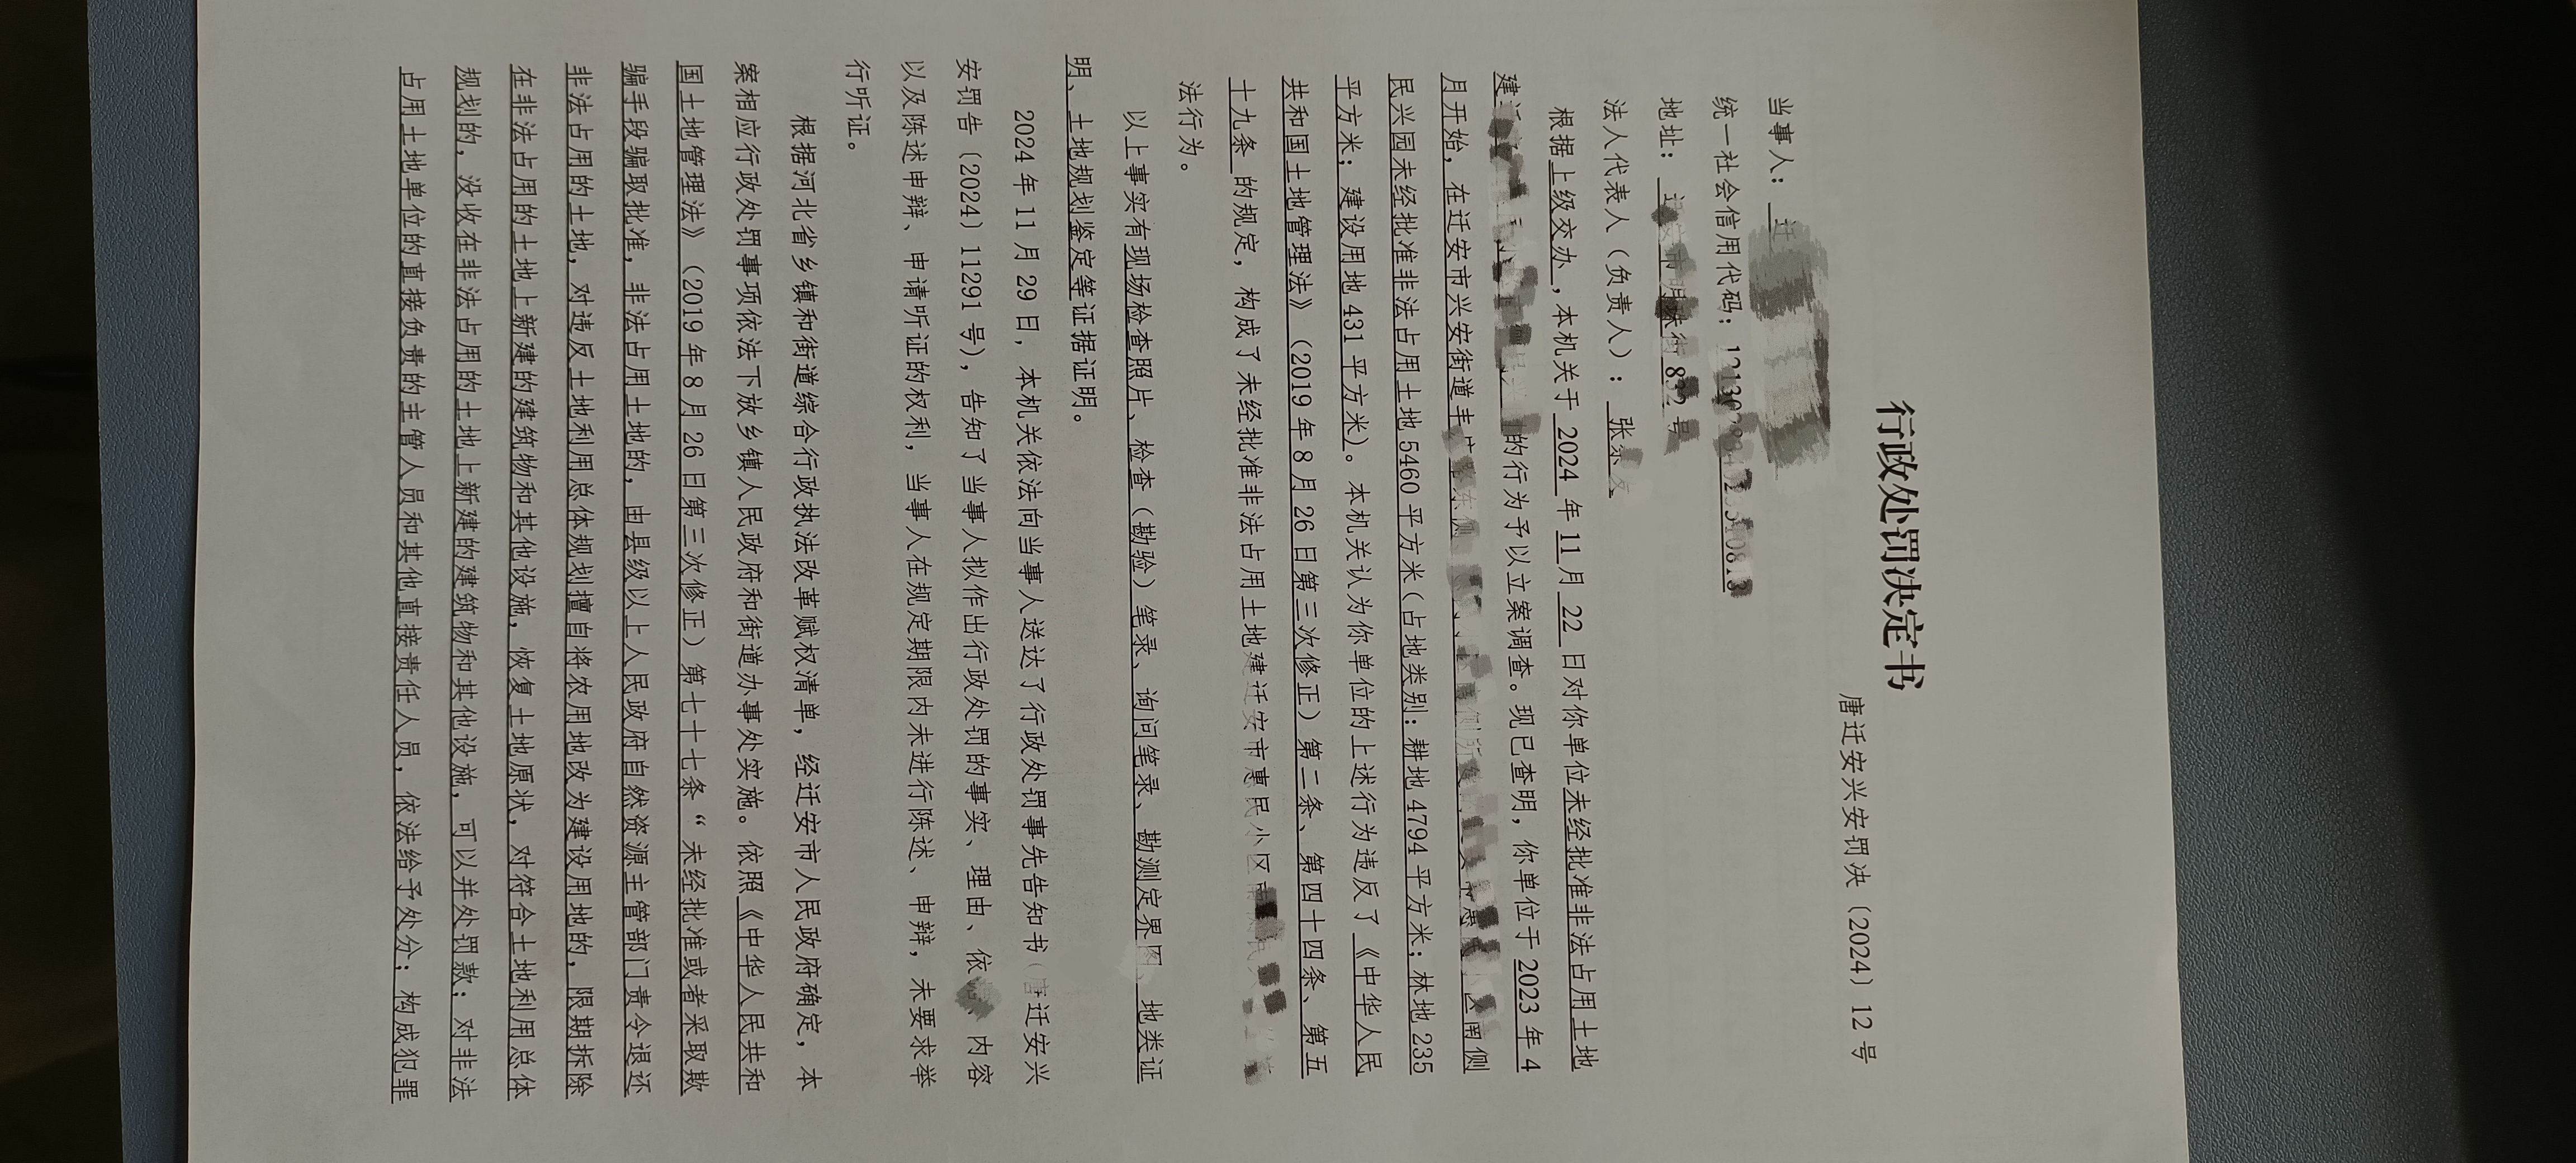 行政处罚决定书
唐迁安兴安罚决（2024）12号
当事人：
统一社会信用代码：
地址：
法人代表人（负责人）：张
根据上级交办，本机关于 2024 年 11 月 22 日对你单位未经批准非法占用土地
建 的行为予以立案调查。现已查明，你单位于 2023 年 4
月开始，在迁安市兴安街道 侧
民兴园未经批准非法占用土地 5460 平方米（占地类别：耕地 4794 平方米；林地 235
平方米；建设用地 431 平方米）。本机关认为你单位的上述行为违反了《中华人民
共和国土地管理法》（2019 年 8 月 26 日第三次修正）第二条、第四十四条、第五
十九条 的规定，构成了未经批准非法占用土地建迁安市惠民小区
法行为。
以上事实有现场检查照片、检查（勘验）笔录、询问笔录、勘测定界图、地类证
明、土地规划鉴定等证据证明。
2024 年 11 月 29 日，本机关依法向当事人送达了行政处罚事先告知书（唐迁安兴
安罚告（2024）11291 号），告知了当事人拟作出行政处罚的事实、理由、依 、内容
以及陈述申辩、申请听证的权利，当事人在规定期限内未进行陈述、申辩，未要求举
行听证。
根据河北省乡镇和街道综合行政执法改革赋权清单，经迁安市人民政府确定，本
案相应行政处罚事项依法下放乡镇人民政府和街道办事处实施。依照《中华人民共和
国土地管理法》（2019 年 8 月 26 日第三次修正）第七十七条“未经批准或者采取欺
骗手段骗取批准，非法占用土地的，由县级以上人民政府自然资源主管部门责令退还
非法占用的土地，对违反土地利用总体规划擅自将农用地改为建设用地的，限期拆除
在非法占用的土地上新建的建筑物和其他设施，恢复土地原状，对符合土地利用总体
规划的，没收在非法占用的土地上新建的建筑物和其他设施，可以并处罚款；对非法
占用土地单位的直接负责的主管人员和其他直接责任人员，依法给予处分；构成犯罪